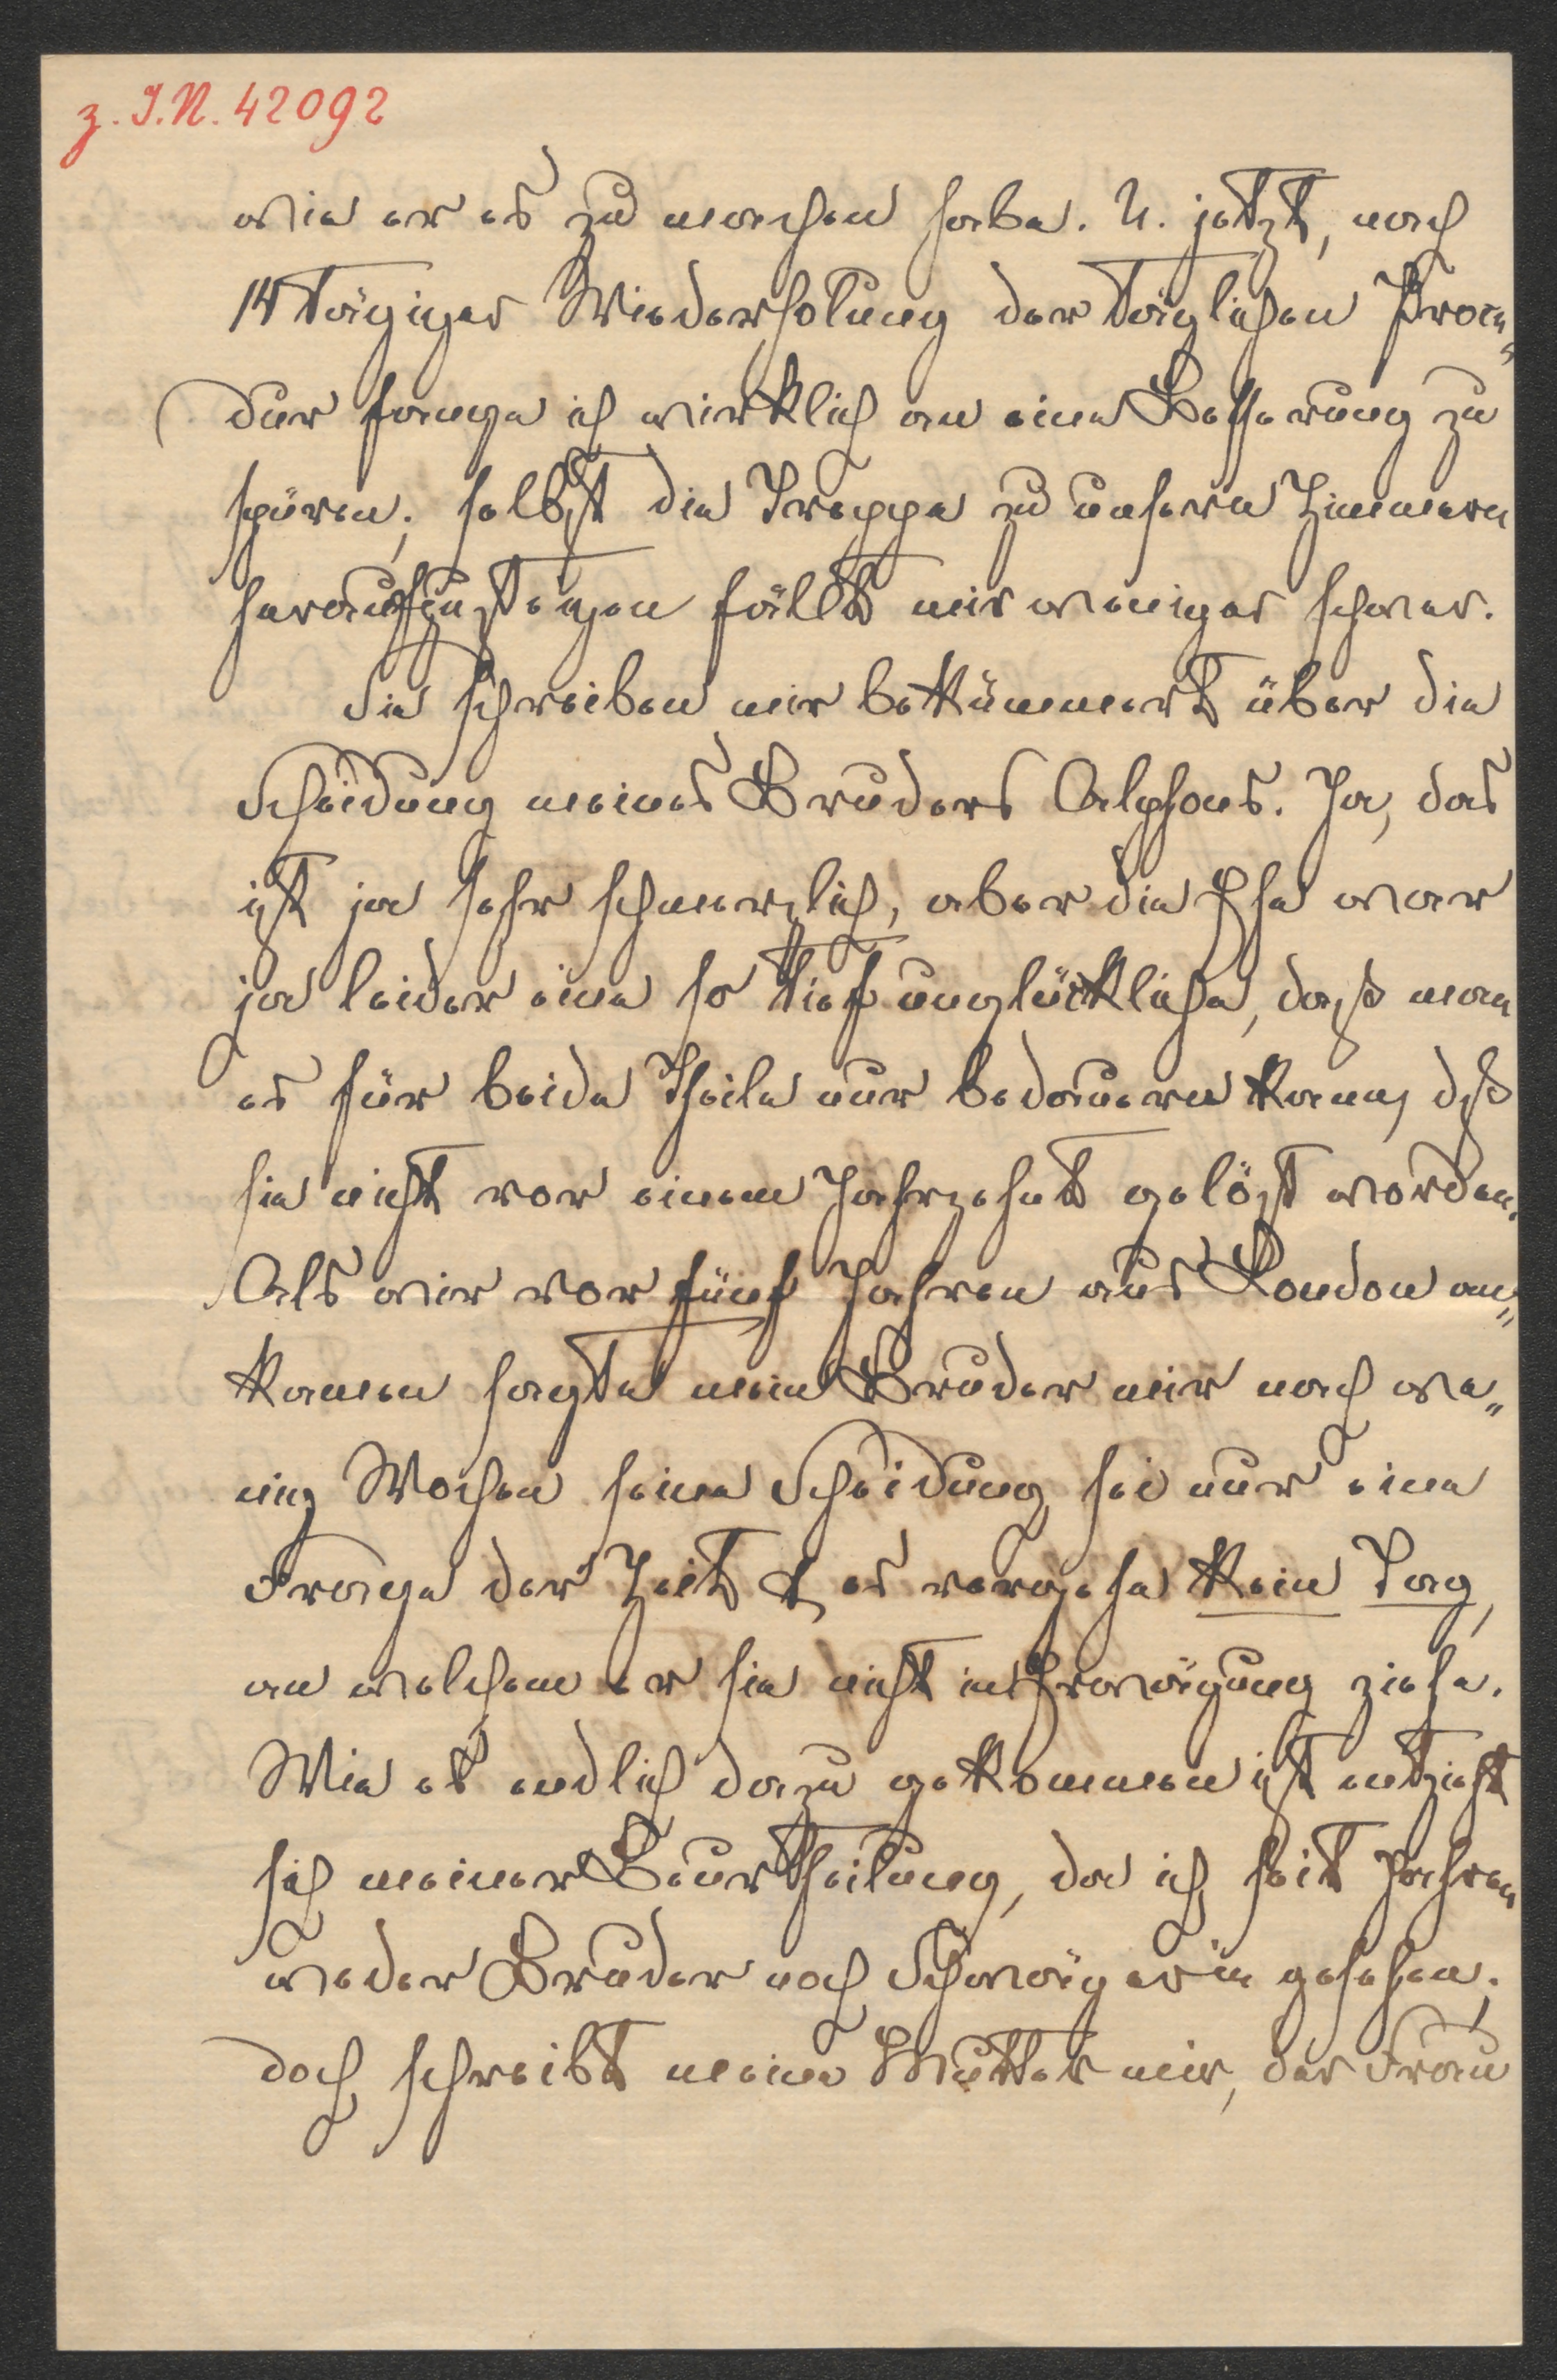 z. I.N. 42092
wie er es zu machen habe. U. jetzt, nach
14 tägiger Wiederholung der täglichen Proce„
dur fange ich wirklich an eine Besserung zu
spüren; selbst die Treppe zu unsern Zimmern
heraufzusteigen fällt mir weniger schwer.
Sie schreiben mir bekümmert über die
Scheidung meines Bruders Alphons. Ja, das
ist ja sehr schmerzlich, aber die Ehe war
ja leider eine so tief unglückliche, daß man
es für beide Theile nur bedauern kann, dß
sie nicht vor einem Jahrzehnt gelöst worden.
Als wir vor fünf Jahren aus London an„
kamen sagte mein Bruder mir nach we„
nig Wochen seine Scheidung sei nur eine
Frage der Zeit & es vergehe kein Tag,
an welchem er sie nicht in Erwägung ziehe.
Wie es endlich dazu gekommen ist entzieht
sich meiner Beurtheilung, da ich seit Jahren
weder Bruder noch Schwägerin gesehen;
doch schreibt meine Mutter mir, der Frau